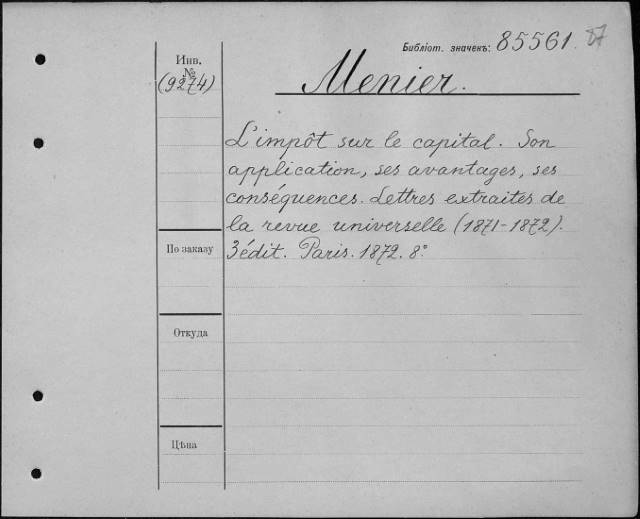 Библіот. значекъ: 85561.
Инв.
№
(9274)
Menier.
L'impôt sur le capital. Son
application, ses avantages, ses
conséquences. Lettres extraites de
la revue universelle (1871-1872).
3 édit. Paris. 1872. 8°
По заказу
Откуда
Цѣна